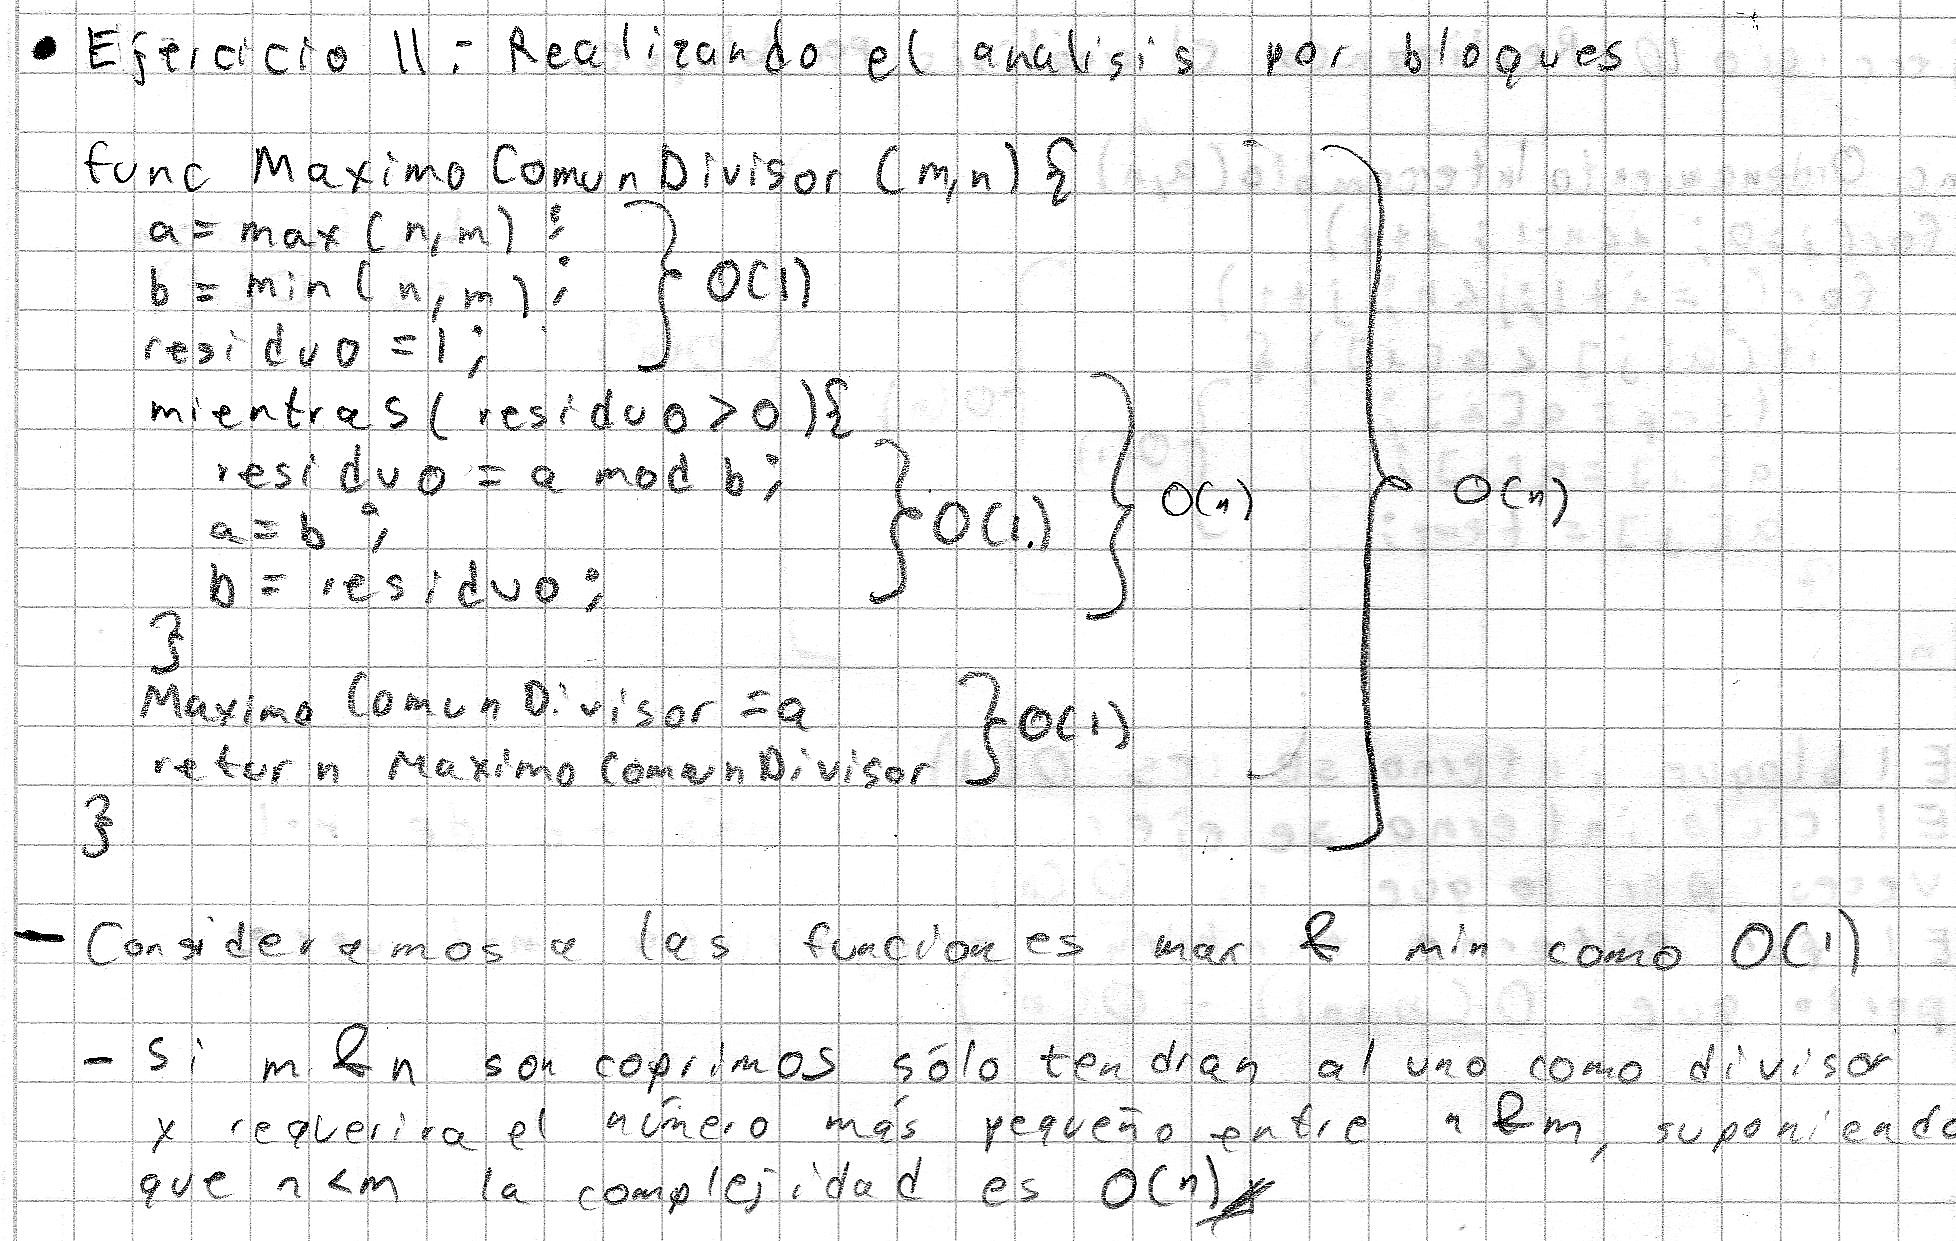 • Ejercicio 11: Realizando el analisis por bloques
func MaximoComunDivisor (m,n) {
a = max (n,m);
b = min (n,m);
residuo = 1;
} O(1)
mientras (residuo > 0) {
residuo = a mod b;
a = b;
b = residuo;
} O(1.)
} O(n)
}
Maximo ComunDivisor = a
return MaximoComunDivisor
} O(1)
}
} O(n)
- Consideramos a las funciones max & min como O(1)
- Si m & n son coprimos sólo tendran al uno como divisor
y requerira el número más pequeño entre n & m, suponiendo
que n < m la complejidad es O(n)